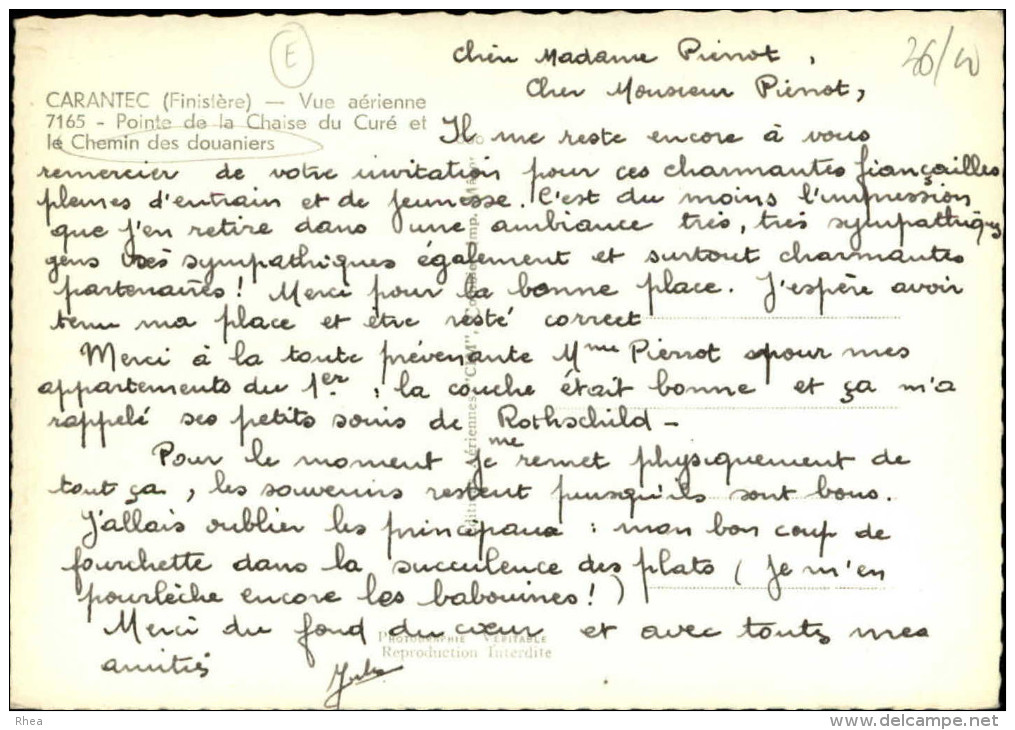 E
36/10
Chère Madame Pierrot,
Cher Monsieur Pierrot,
CARANTEC (Finistère) — Vue aérienne
7165 - Pointe de la Chaise du Curé et
le Chemin des douaniers
Il me reste encore à vous
remercier de votre invitation pour ces charmantes fiançailles
pleines d'entrain et de jeunesse. C'est du moins l'impression
que j'en retire dans une ambiance très, très sympathique,
gens sympathiques également et surtout charmantes
partenaires ! Merci pour la bonne place. J'espère avoir
tenu ma place et être resté correct
Merci à la toute prévenante Mme Pierrot pour mes
appartements du 1er, la couche était bonne et ça m'a
rappelé ses petits soins de Rothschild -
Pour le moment je me remet physiquement de
tout ça, les souvenirs restent puisqu'ils sont bons.
J'allais oublier les principaux : mon bon coup de
fourchette dans la succulence des plats (Je m'en
pourlèche encore les babouines !)
Merci du fond du cœur et avec toutes mes
amitiés
Jules
Editions Aériennes "CIM", Combier Imp. Mâcon
PHOTOGRAPHIE VÉRITABLE
Reproduction Interdite
Rhea
www.delcampe.net